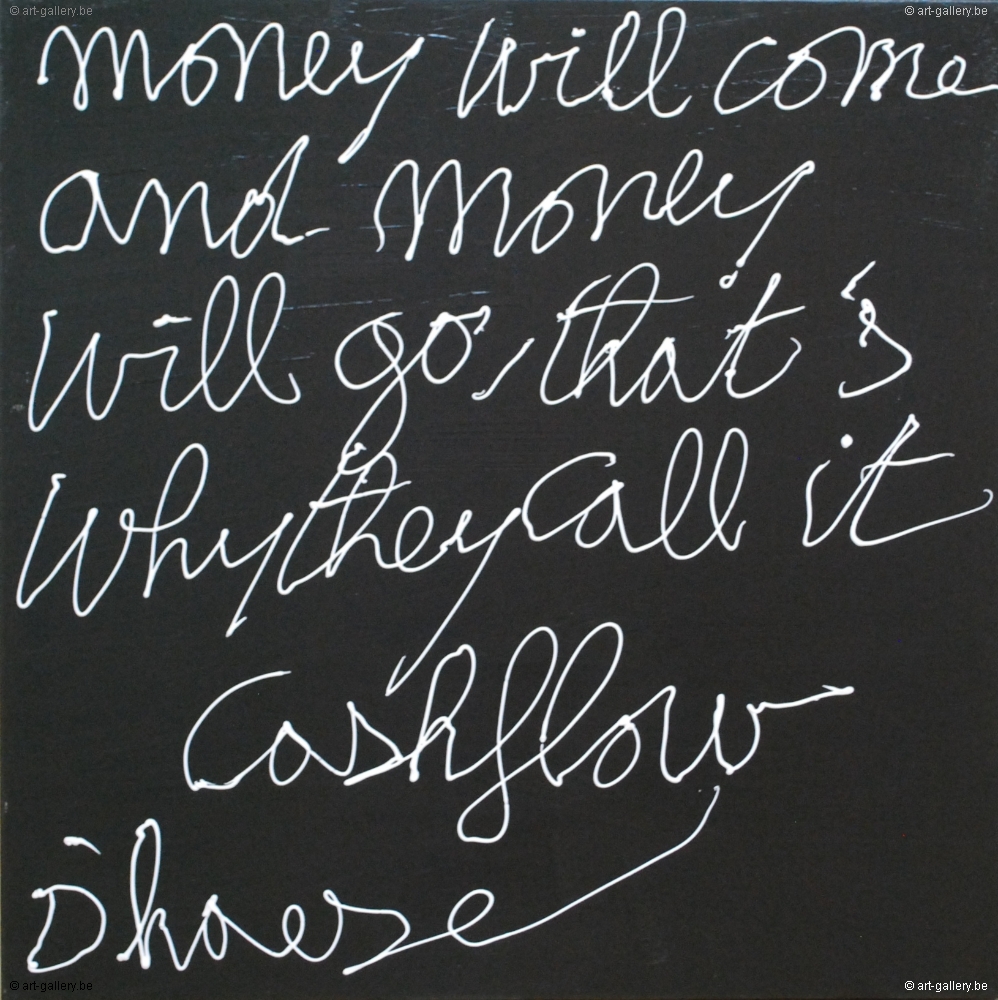 © art-gallery.be © art-gallery.be
money will come
and money
will go, that's
why they call it
Cashflow
© art-gallery.be © art-gallery.be